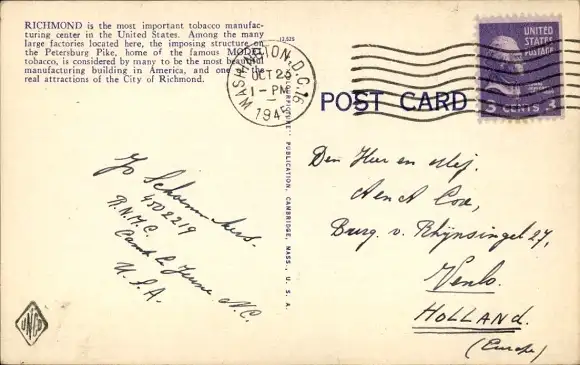 RICHMOND is the most important tobacco manufac-
turing center in the United States. Among the many
large factories located here, the imposing structure on
the Petersburg Pike, home of the famous MODEL
tobacco, is considered by many to be the most beautiful
manufacturing building in America, and one of the
real attractions of the City of Richmond.
12,525
WASHINGTON, D.C. 16
OCT 23
1 - PM
1945
UNITED
STATES
POSTAGE
3 CENTS 3
POST CARD
"COLOURPICTURE" PUBLICATION, CAMBRIDGE, MASS., U. S. A.
Jo
4502219
R.N.M.C.
Camp Le Jeune N.C.
U.S.A.
Den Heer en Mej.
A en A
Burg. v. Rhijnsingel 27,
Venlo.
HOLLAND.
(Europe)